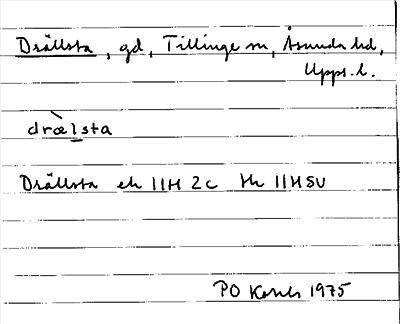 Drällsta, gd, Tillinge sn, Åsunda hd,
Upps. l.
dræ̀lsta
Drällsta ek 11H 2c tk 11HSV
PO 1975